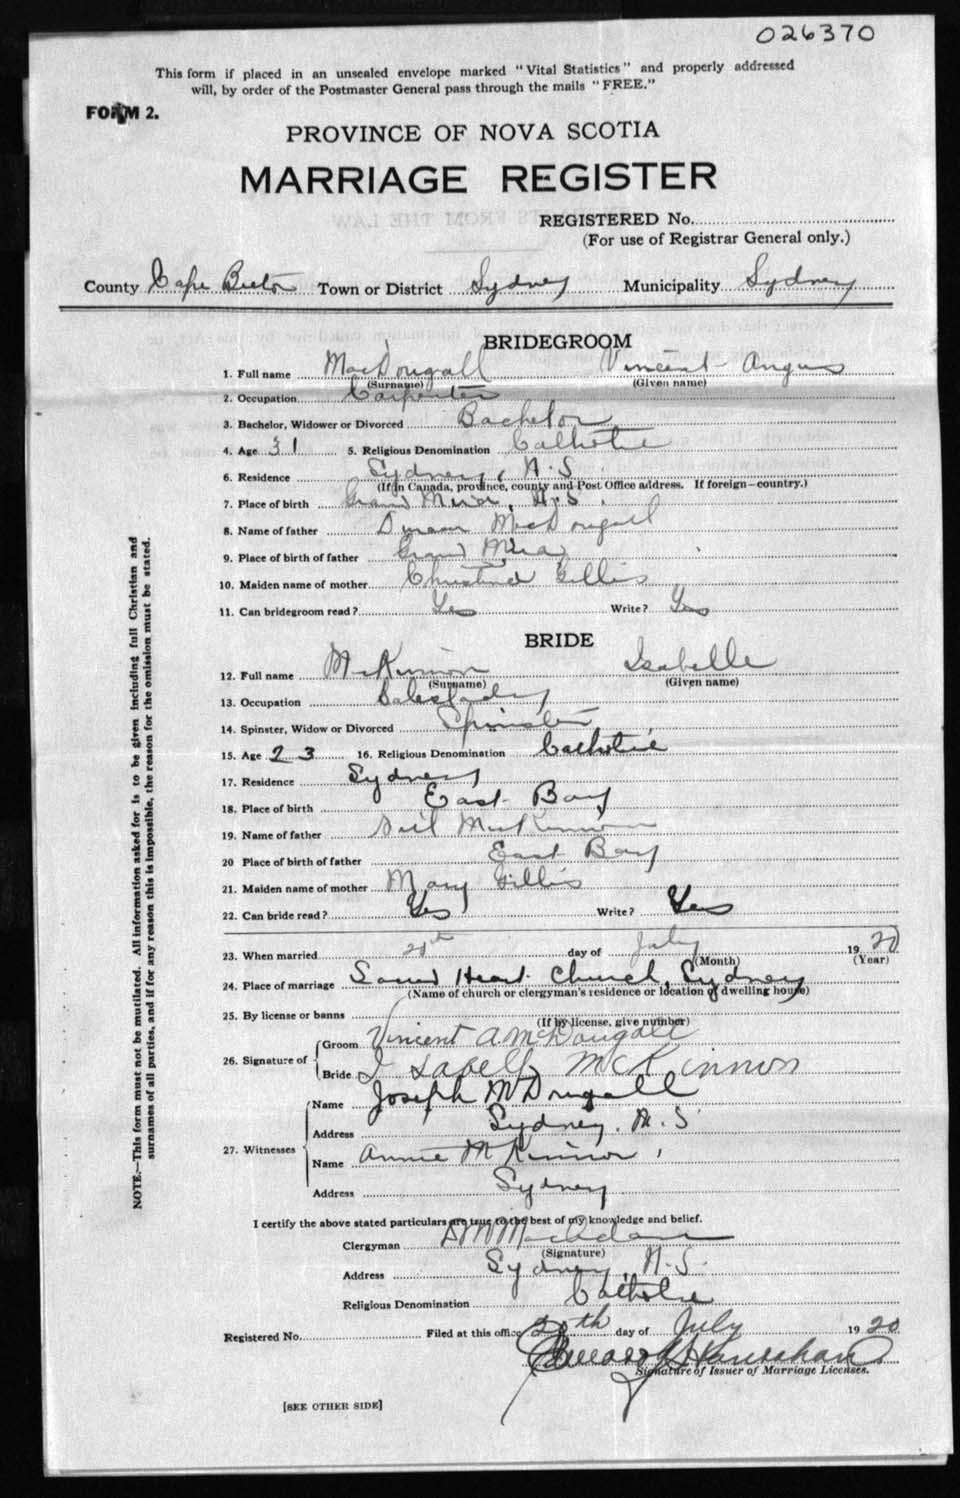 026370
This form if placed in an unsealed envelope marked "Vital Statistics" and properly addressed
will, by order of the Postmaster General pass through the mails "FREE."
FORM 2.
PROVINCE OF NOVA SCOTIA
MARRIAGE REGISTER
REGISTERED No.
(For use of Registrar General only.)
County Cape Breton Town or District Sydney Municipality Sydney
BRIDEGROOM
1. Full name MacDougall Vincent Angus
(Surname) (Given name)
2. Occupation Carpenter
3. Bachelor, Widower or Divorced Bachelor
4. Age 31 5. Religious Denomination Catholic
6. Residence Sydney, N.S.
(If in Canada, province, county and Post Office address. If foreign—country.)
7. Place of birth Grand Mira, N.S.
8. Name of father Duncan MacDougall
9. Place of birth of father Grand Mira
10. Maiden name of mother Christina Gillis
11. Can bridegroom read? Yes Write? Yes
BRIDE
12. Full name McKinnon Isabelle
(Surname) (Given name)
13. Occupation Saleslady
14. Spinster, Widow or Divorced Spinster
15. Age 23 16. Religious Denomination Catholic
17. Residence Sydney
18. Place of birth East Bay
19. Name of father Neil MacKinnon
20 Place of birth of father East Bay
21. Maiden name of mother Mary Gillis
22. Can bride read? Yes Write? Yes
23. When married 20th day of July 1920
(Month) (Year)
24. Place of marriage Sacred Heart Church, Sydney
(Name of church or clergyman's residence or location of dwelling house)
25. By license or banns
(If by license, give number)
26. Signature of Groom Vincent A. McDougall
Bride Isabelle McKinnon
27. Witnesses Name Joseph McDougall
Address Sydney, N.S.
Name Annie McKinnon
Address Sydney
I certify the above stated particulars are true to the best of my knowledge and belief.
Clergyman
(Signature)
Address Sydney, N.S.
Religious Denomination Catholic
Registered No. Filed at this office 20th day of July 1920
Signature of Issuer of Marriage Licenses.
[SEE OTHER SIDE]
NOTE.—This form must not be mutilated. All information asked for is to be given including full Christian and
surnames of all parties, and if for any reason this is impossible, the reason for the omission must be stated.